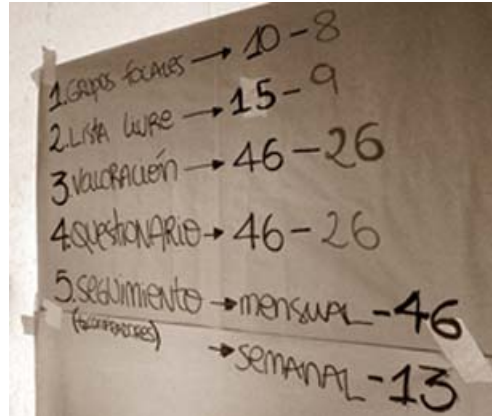 1. GRUPOS FOCALES → 10 - 8
2. LISTA LIVRE → 15 - 9
3. VALORACIÓN → 46 - 26
4. QUESTIONARIO → 46 - 26
5. SEGUIMIENTO → MENSUAL - 46
→ SEMANAL - 13